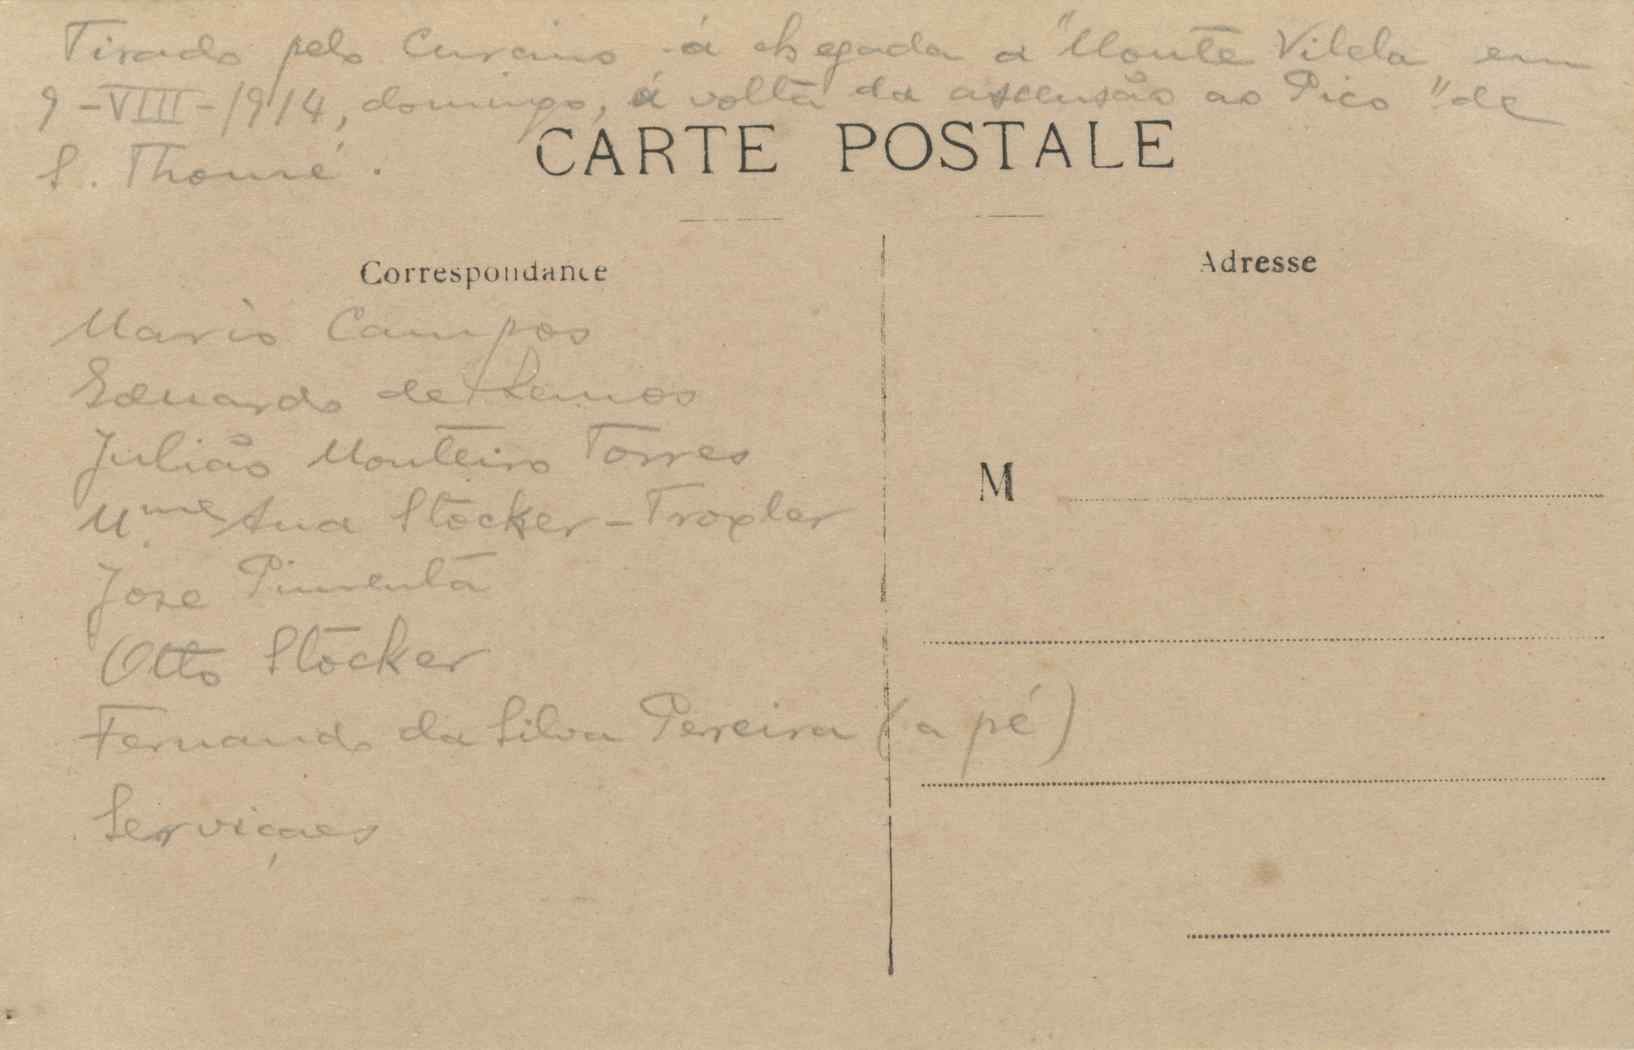 Tirado pelo Cursino á chegada a "Monte Vilela em
9-VIII-1914, domingo, á volta da ascensão ao Pico "de
S. Thomé.
CARTE POSTALE
Correspondance
Adresse
Mario Campos
Eduardo de Lemos
Julião Monteiro Torres
M.me Ana Stöcker-Troxler
José Pimenta
Otto Stöcker
Fernando da Silva Pereira (a pé)
Serviçaes
M